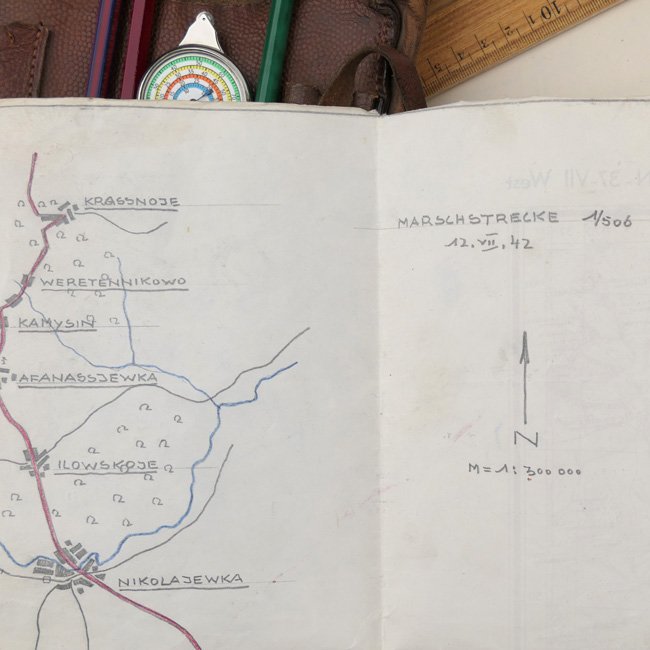 KRASSNOJE
WERETENNIKOWO
KAMYSIN
AFANASSJEWKA
ILOWSKOJE
NIKOLAJEWKA
N-37-VII West
MARSCHSTRECKE 1/506
12.VII.42
N
M = 1:300 000
101